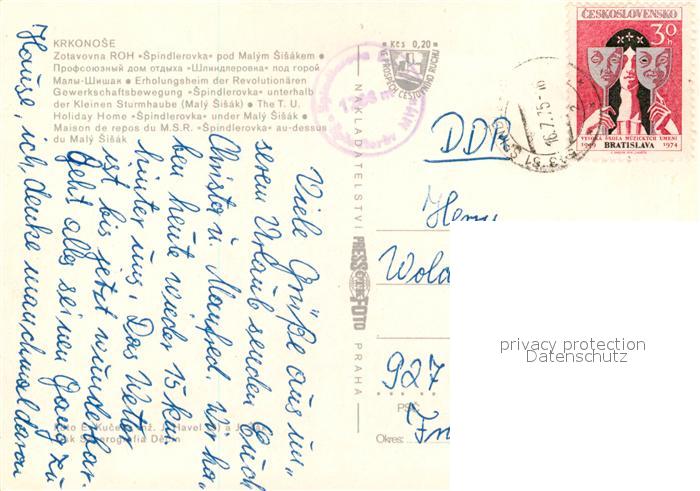 KRKONOŠE
Zotavovna ROH «Špindlerovka» pod Malým Šišákem •
Профсоюзный дом отдыха «Шпиндлеровка» под горой
Малы-Шишак • Erholungsheim der Revolutionären
Gewerkschaftsbewegung «Špindlerovka» unterhalb
der Kleinen Sturmhaube (Malý Šišák) • The T. U.
Holiday Home «Špindlerovka» under Malý Šišák •
Maison de repos du M.S.R. «Špindlerovka» au-dessus
du Malý Šišák
Viele Grüße aus un„
serem Urlaub senden Euch
Christa u. Manfred. Wir ha„
ben heute wieder 15 km
hinter uns. Das Wetter
ist bis jetzt wunderbar.
Geht alles seinen Gang zu
Hause, ich denke manchmal daran
NAKLADATELSTVÍ PRESSFOTO PRAHA
Kčs 0,20
VE PROSPĚCH CESTOVNÍHO RUCHU
ČESKOSLOVENSKO
30h
VYSOKÁ ŠKOLA MÚZICKÝCH UMENÍ
1949 BRATISLAVA 1974
16.7.75
DDR
Wola
927
PSČ
Okres:
privacy protection
Datenschutz